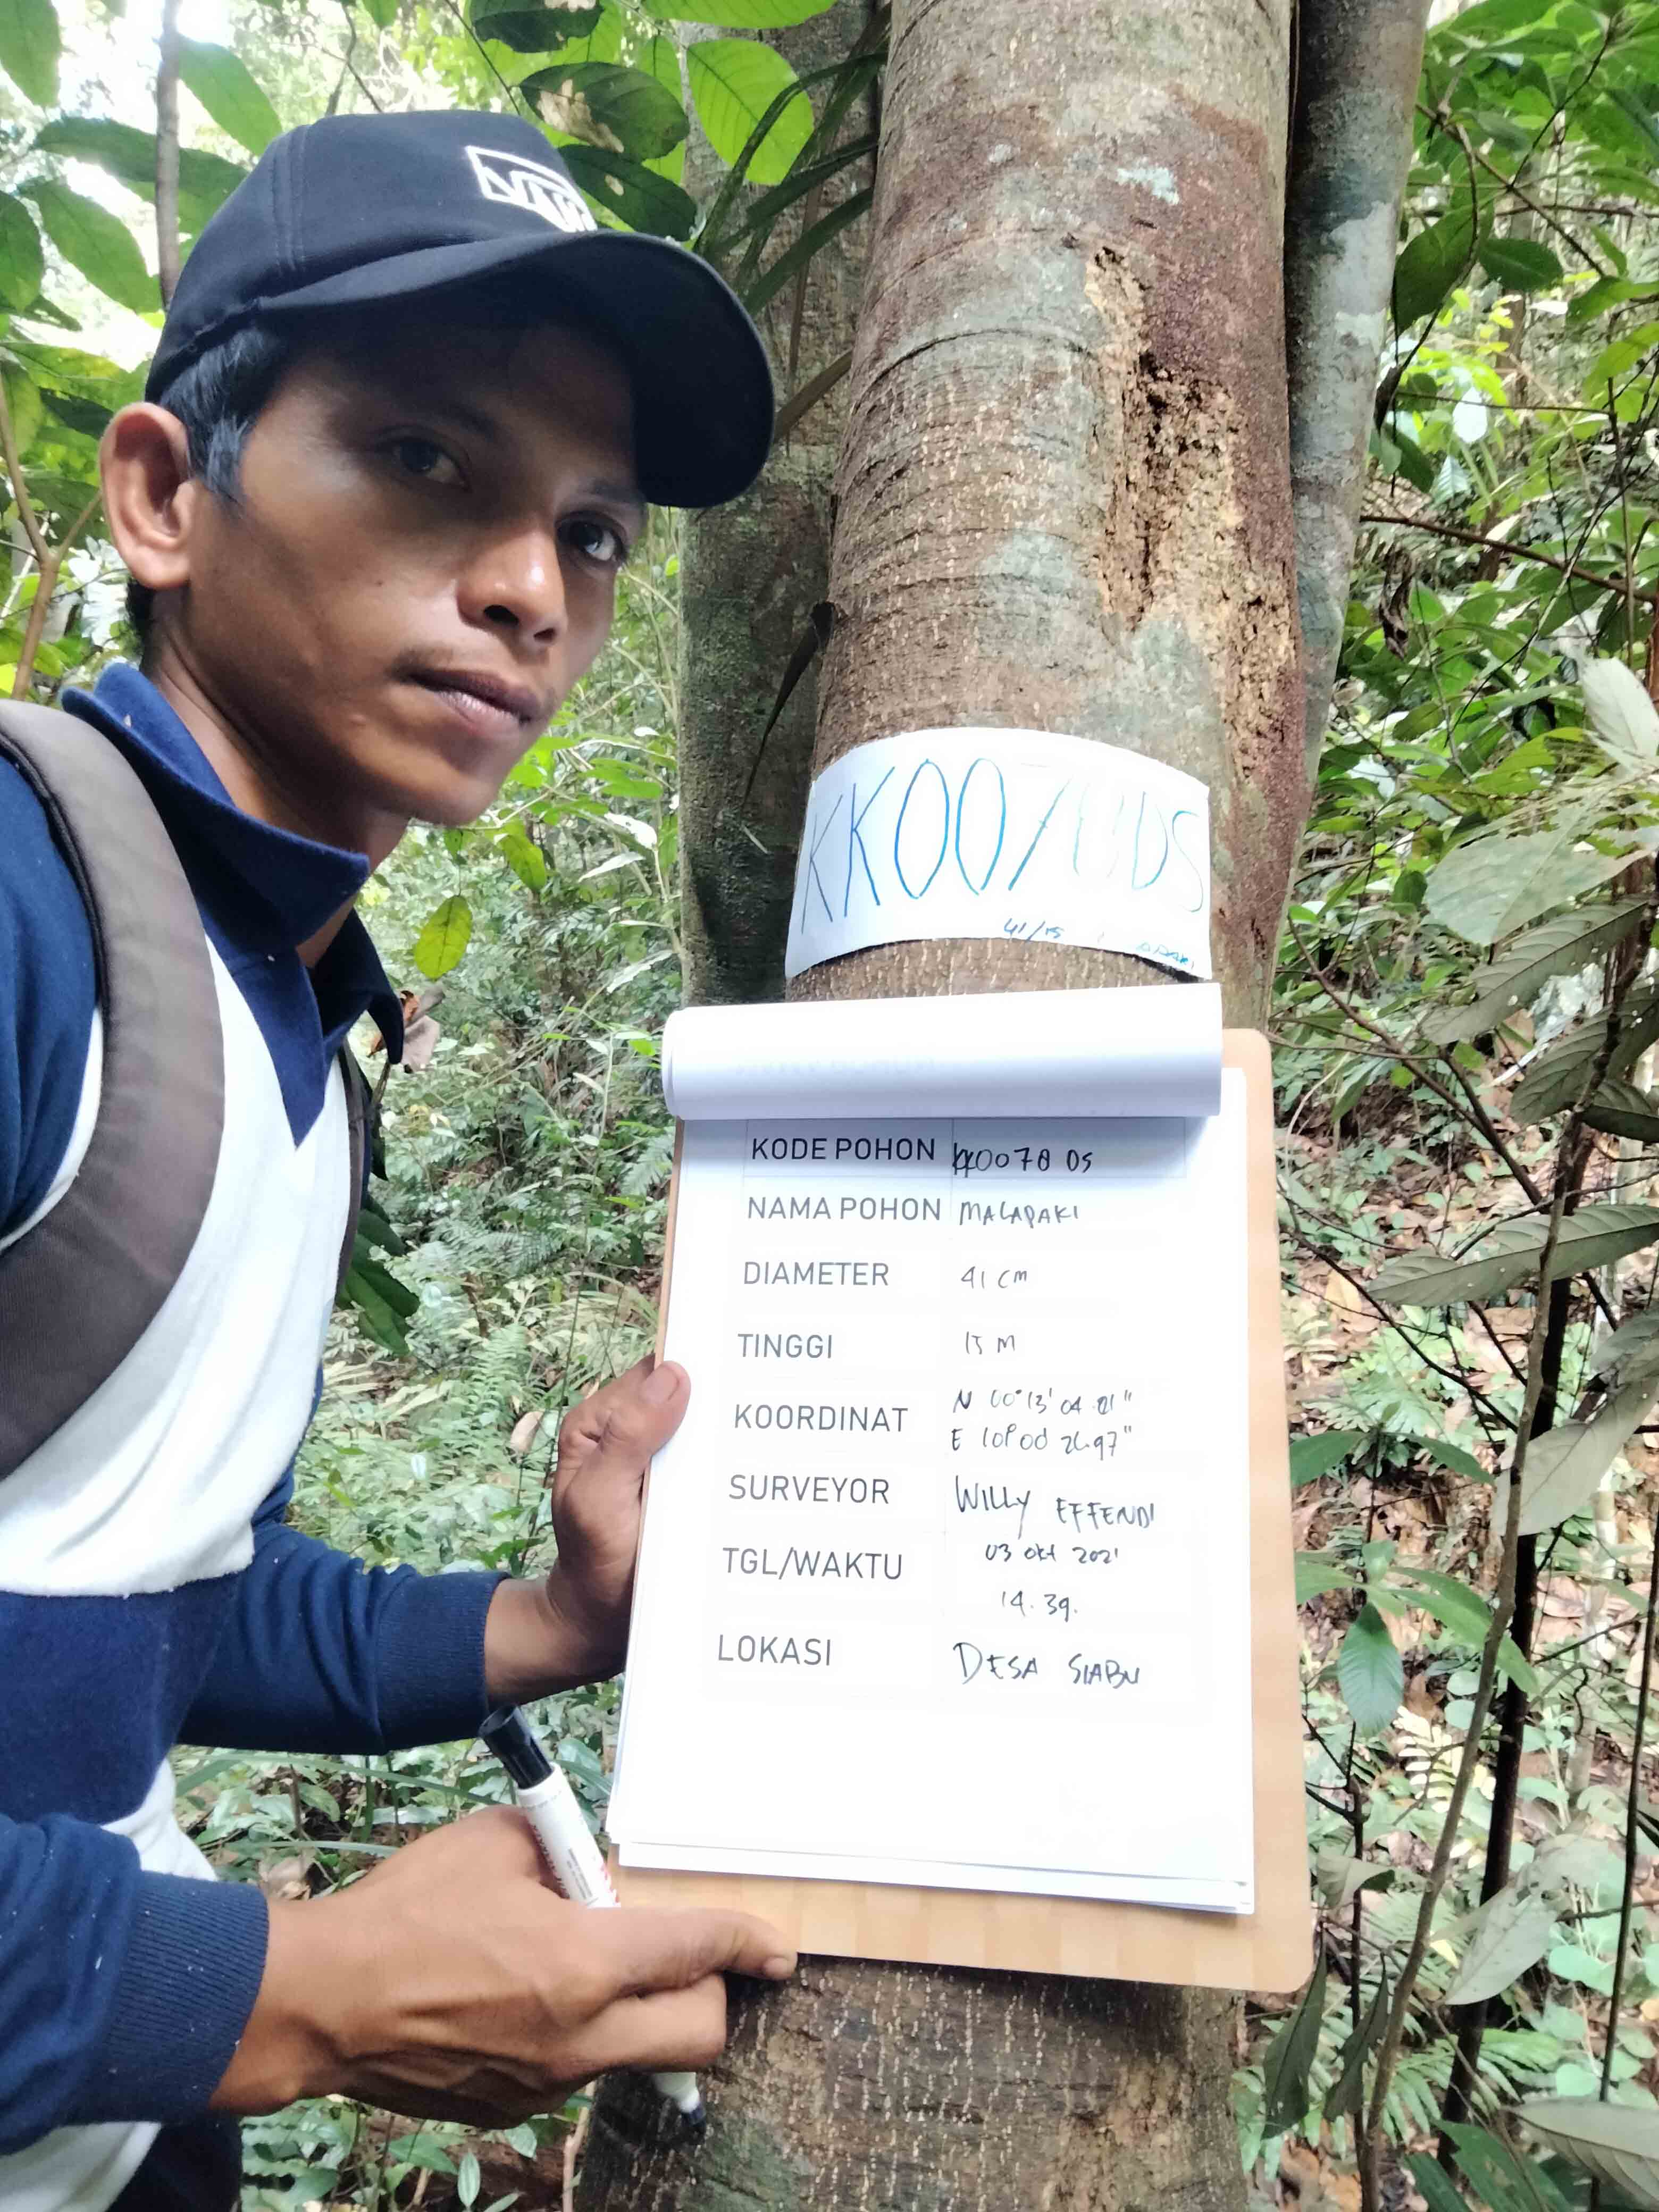 KODE POHON KK0078 DS
NAMA POHON MALAPAKI
DIAMETER 41 cm
TINGGI 15 M
KOORDINAT N 00°13' 04.01"
E
SURVEYOR WILLY EFFENDI
TGL/WAKTU 03 okt 2021
14.39.
LOKASI DESA SIABU